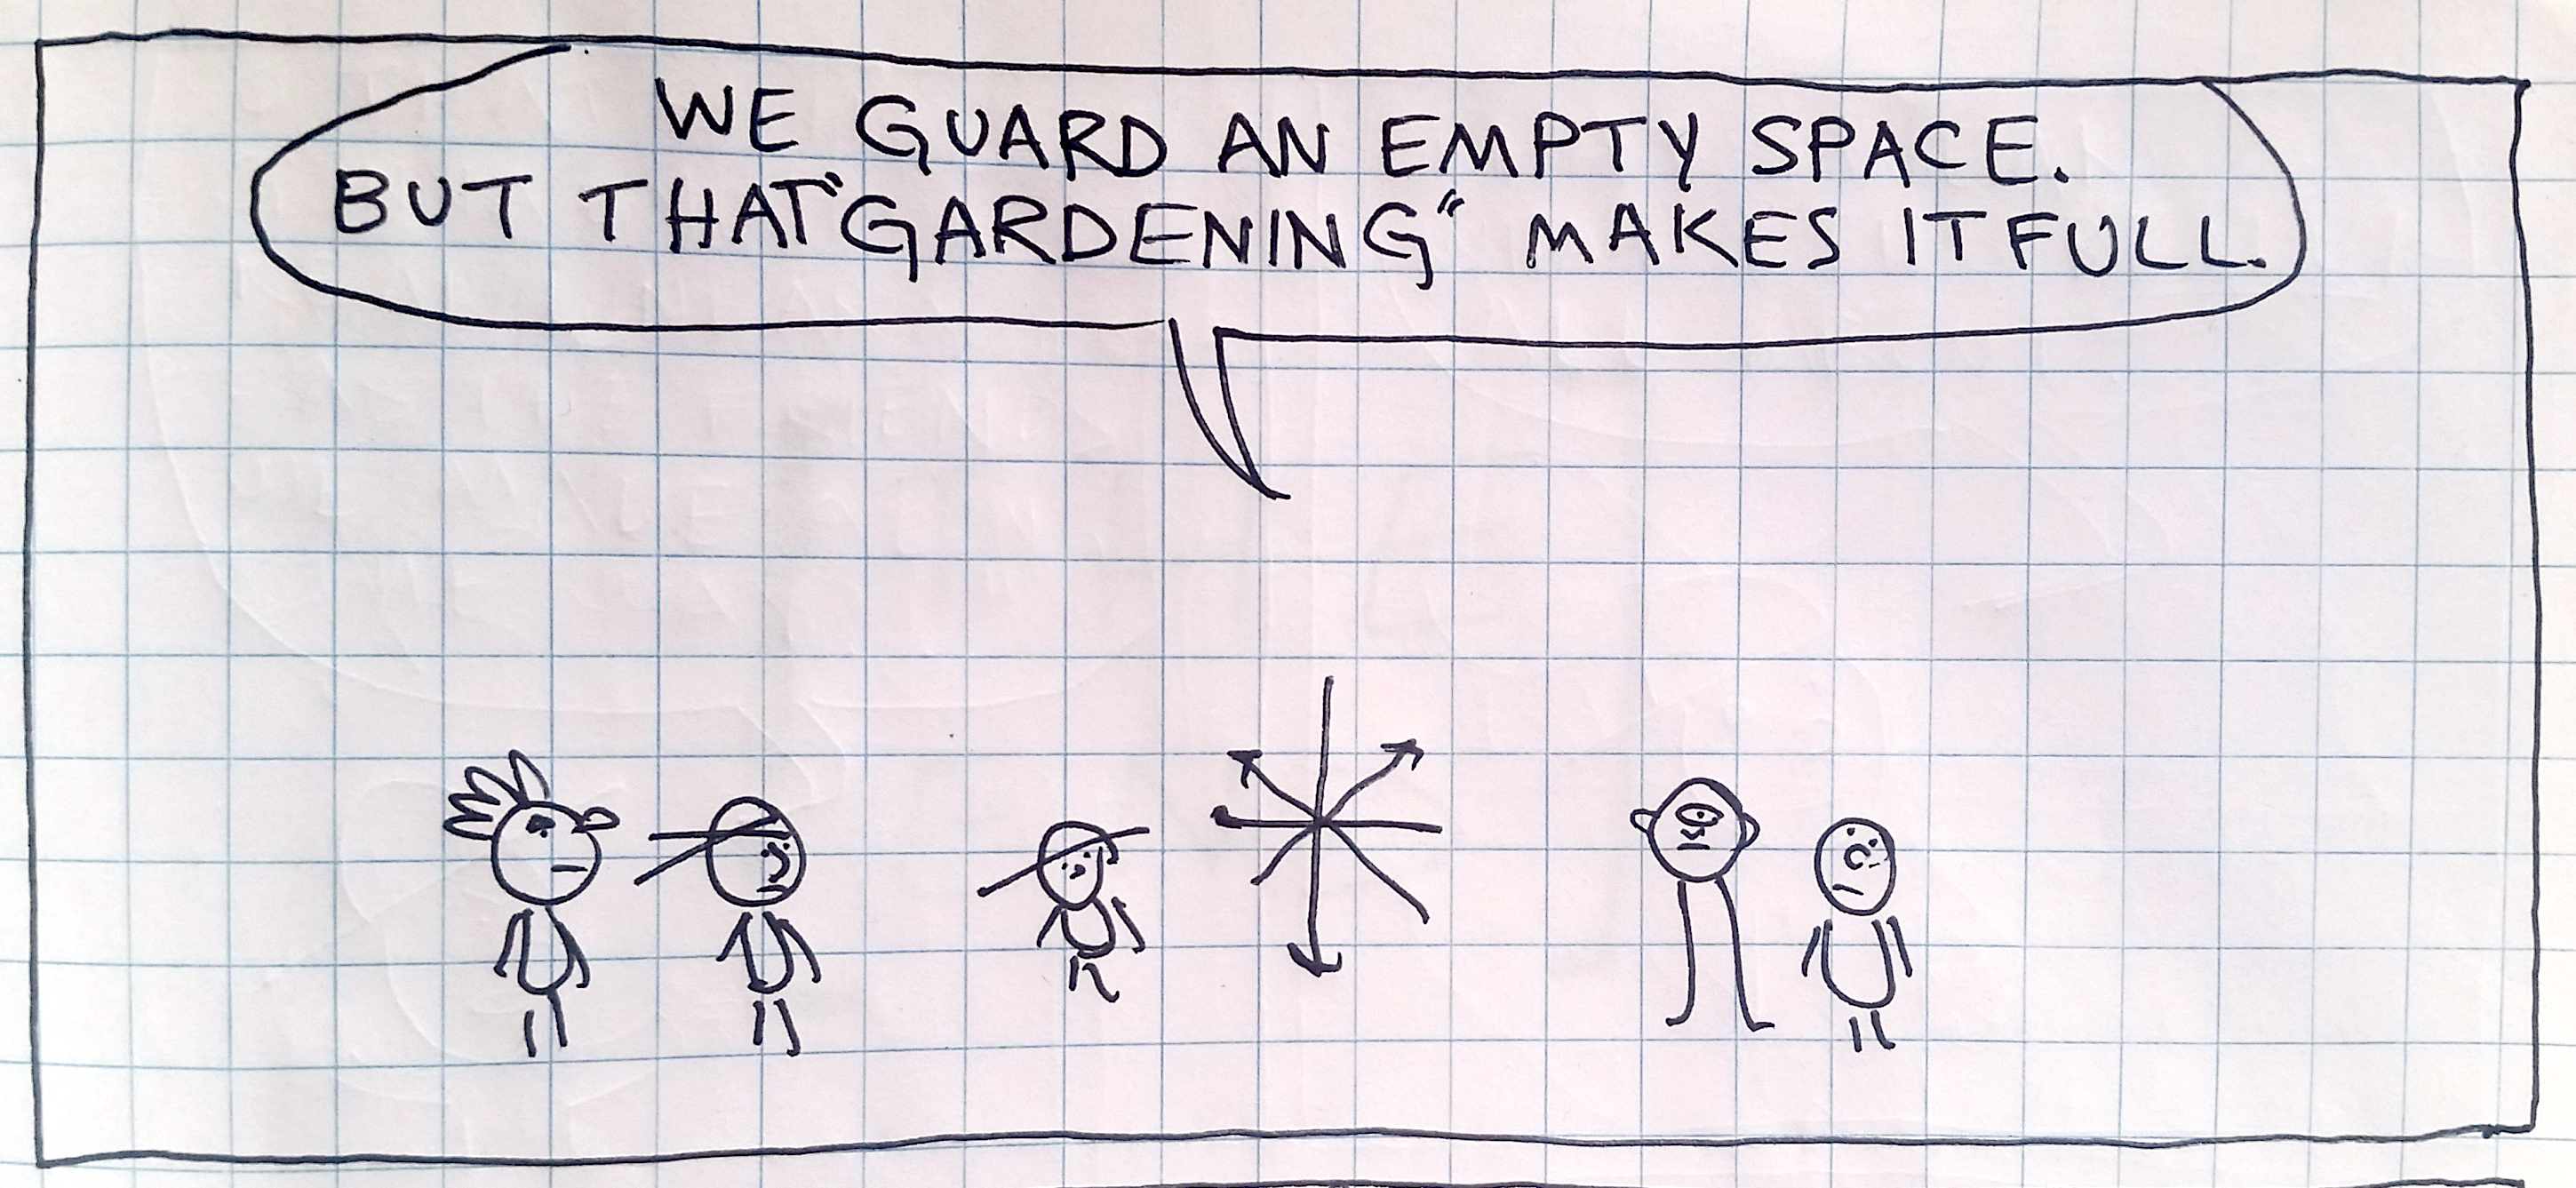 WE GUARD AN EMPTY SPACE.
BUT THAT "GARDENING" MAKES IT FULL.